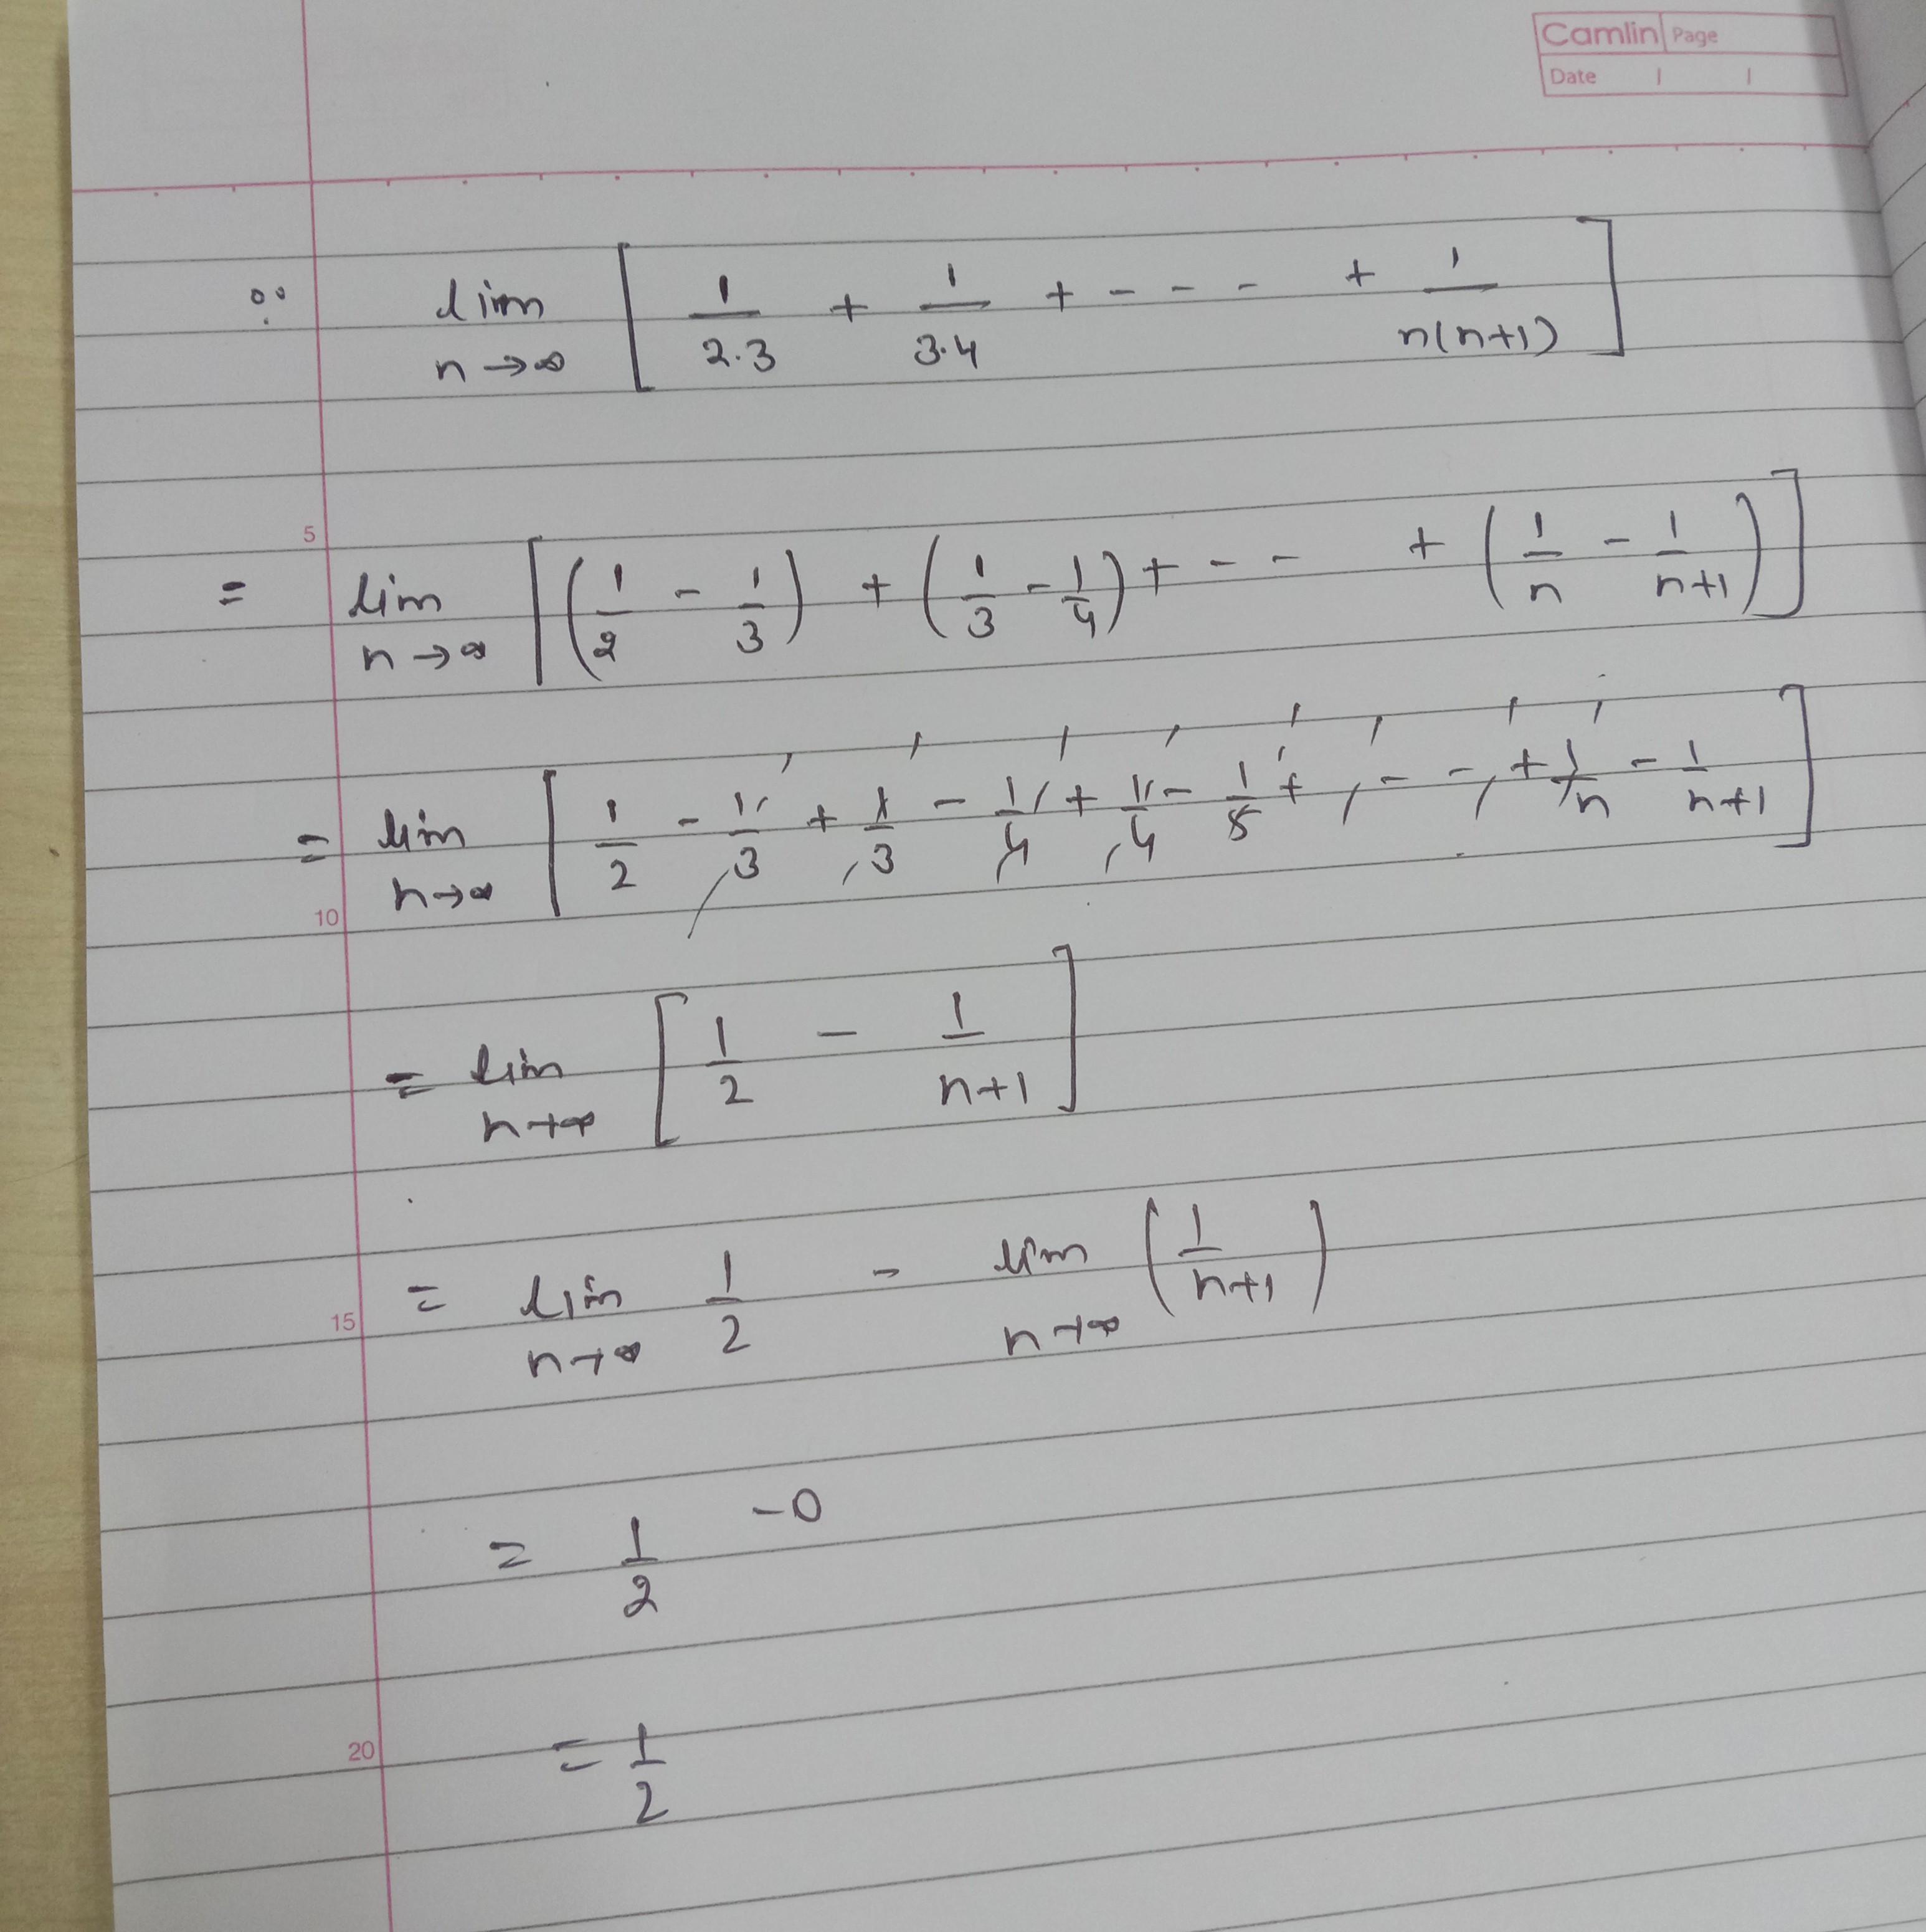 Camlin Page
Date / /
∵ lim n→∞ [ 1/2.3 + 1/3.4 + - - - + 1/n(n+1) ]
5
= lim n→∞ [ (1/2 - 1/3) + (1/3 - 1/4) + - - + (1/n - 1/n+1) ]
= lim n→∞ [ 1/2 - 1/3 + 1/3 - 1/4 + 1/4 - 1/5 + - - + 1/n - 1/n+1 ]
10
= lim n→∞ [ 1/2 - 1/n+1 ]
15
= lim n→∞ 1/2 - lim n→∞ (1/n+1)
= 1/2 -0
20
= 1/2